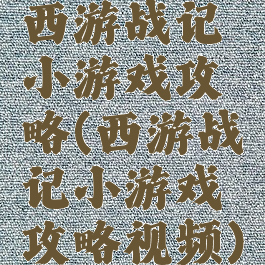 西游战记
小游戏攻
略(西游战
记小游戏
攻略视频)